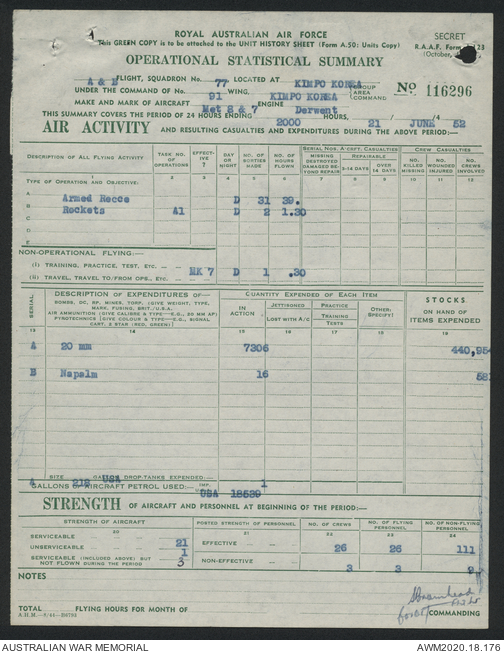 ROYAL AUSTRALIAN AIR FORCE
SECRET
This GREEN COPY is to be attached to the UNIT HISTORY SHEET (Form A.50: Units Copy)
R.A.A.F. Form
OPERATIONAL STATISTICAL SUMMARY
A & E FLIGHT, SQUADRON No. 77 LOCATED AT KIMPO KOREA
UNDER THE COMMAND OF No. 91 WING, KIMPO KOREA GROUP AREA COMMAND
No 116296
MAKE AND MARK OF AIRCRAFT Met 8 & 7 ENGINE Derwent
THIS SUMMARY COVERS THE PERIOD OF 24 HOURS ENDING 2000 HOURS, 21 / JUNE /4 52
AIR ACTIVITY AND RESULTING CASUALTIES AND EXPENDITURES DURING THE ABOVE PERIOD:—
DESCRIPTION OF ALL FLYING ACTIVITY
TASK NO. OF OPERATIONS
EFFECTIVE ?
DAY OR NIGHT
NO. OF SORTIES MADE
NO. OF HOURS FLOWN
SERIAL NOS. A-CRFT. CASUALTIES
MISSING DESTROYED DAMAGED BEYOND REPAIR
REPAIRABLE
2-14 DAYS
OVER 14 DAYS
CREW CASUALTIES
NO. KILLED MISSING
NO. WOUNDED INJURED
NO. CREWS INVOLVED
1 2 3 4 5 6 7 8 9 10 11 12
TYPE OF OPERATION AND OBJECTIVE:
A Armed Recce D 31 39.
B Rockets A1 D 2 1.30
C
D
E
NON-OPERATIONAL FLYING:—
(i) TRAINING, PRACTICE, TEST, ETC.
(ii) TRAVEL, TRAVEL TO/FROM OPS., ETC. MK 7 D 1 .30
SERIAL
DESCRIPTION OF EXPENDITURES OF—
BOMBS, DC, RP, MINES, TORP. (GIVE WEIGHT, TYPE, MARK, FUSING, BRIT./U.S.A.
AIR AMMUNITION (GIVE CALIBRE & TYPE—E.G., 20 MM AP)
PYROTECHNICS (GIVE COLOUR & TYPE—E.G., SIGNAL CART, 2 STAR (RED, GREEN)
QUANTITY EXPENDED OF EACH ITEM
IN ACTION
JETTISONED
LOST WITH A/C
PRACTICE
TRAINING
TESTS
OTHER: SPECIFY
STOCKS
ON HAND OF ITEMS EXPENDED
13 14 15 16 17 18 19
A 20 mm 7306 440,954
B Napalm 16
SIZE 212 USA GALLONS DROP-TANKS EXPENDED: 1
GALLONS OF AIRCRAFT PETROL USED: IMP.
USA 18539
STRENGTH OF AIRCRAFT AND PERSONNEL AT BEGINNING OF THE PERIOD:—
STRENGTH OF AIRCRAFT
POSTED STRENGTH OF PERSONNEL
NO. OF CREWS
NO. OF FLYING PERSONNEL
NO. OF NON-FLYING PERSONNEL
20 21 22 23 24
SERVICEABLE 21
UNSERVICEABLE 1
SERVICEABLE (INCLUDED ABOVE) BUT NOT FLOWN DURING THE PERIOD 3
EFFECTIVE 26 26 111
NON-EFFECTIVE 3 3
NOTES
TOTAL FLYING HOURS FOR MONTH OF
COMMANDING
AUSTRALIAN WAR MEMORIAL
AWM2020.18.176